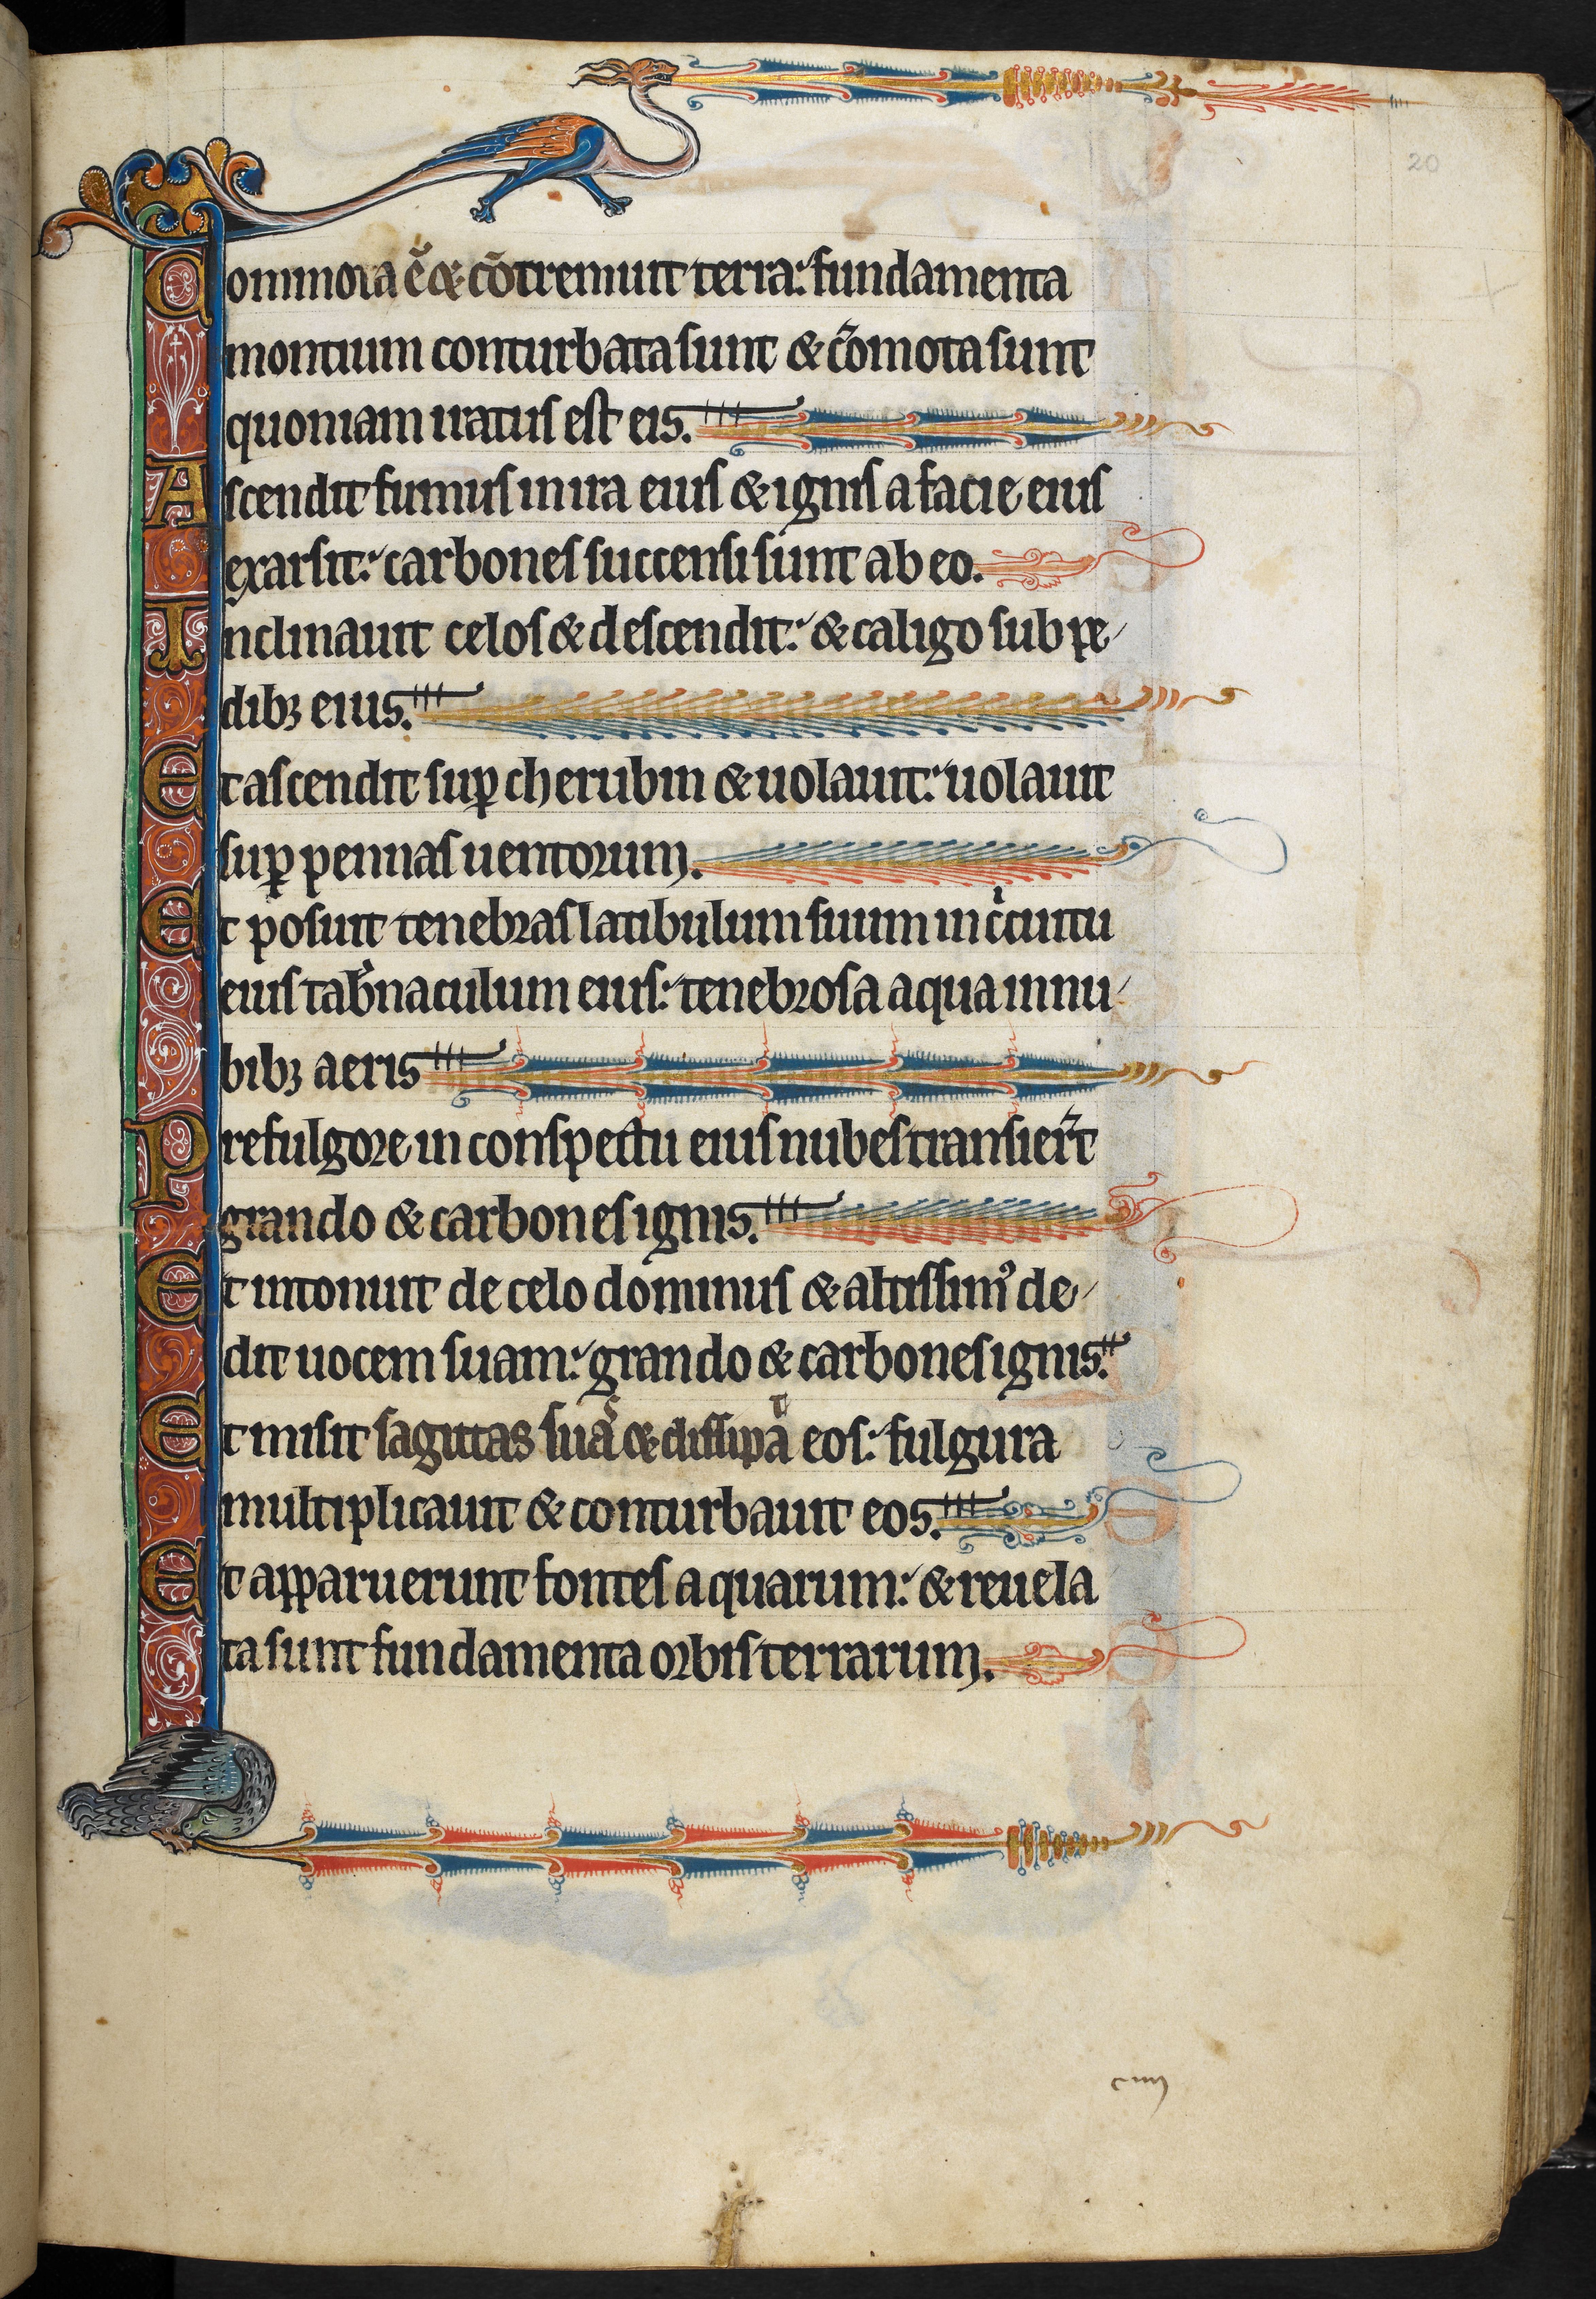 20
Commota ē & cōtremuit terra: fundamenta
montium conturbata sunt & cōmota sunt
quoniam iratus est eis.
Ascendit fumus in ira eius & ignis a facie eius
exarsit: carbones succensi sunt ab eo.
Inclinauit celos & descendit: & caligo sub pe
dibꝫ eius.
Et ascendit suꝑ cherubin & uolauit: uolauit
suꝑ pennas uentorum.
Et posuit tenebras latibulum suum in cͥcuitu
eius tab̓naculum eius: tenebrosa aqua in nu
bibꝫ aeris
Prefulgore in conspectu eius nubes transier̄t
grando & carbones ignis.
Et intonuit de celo dominus & altissimꝰ de
dit uocem suam: grando & carbones ignis.
Et misit sagittas suaˢ & dissipaᵗ eos: fulgura
multiplicauit & conturbauit eos.
Et apparuerunt fontes aquarum: & reuela
ta sunt fundamenta orbis terrarum.